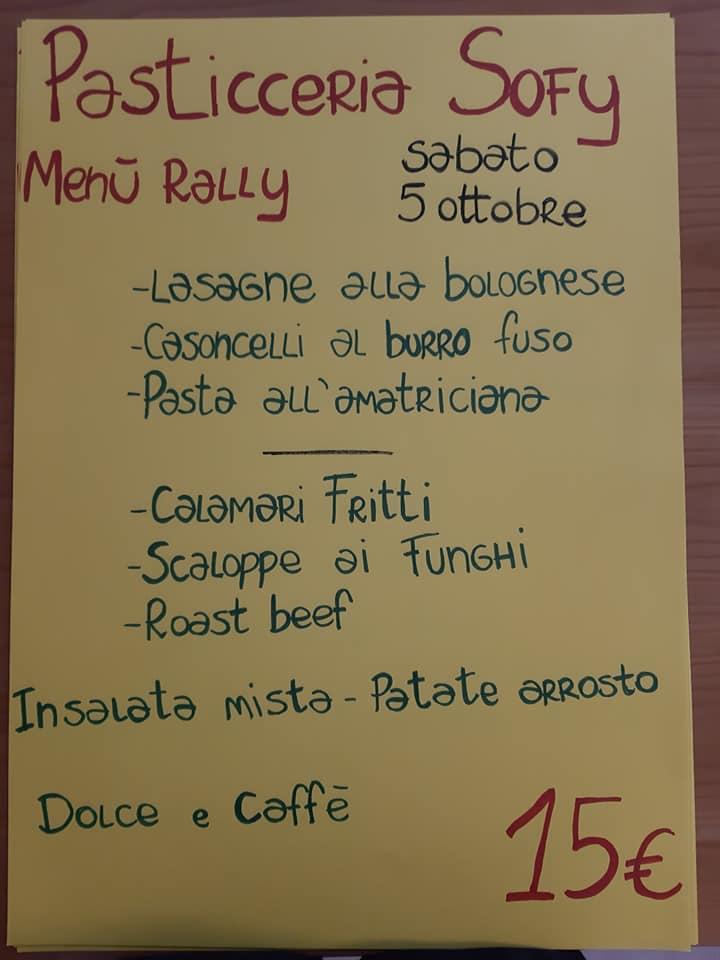 Pasticceria Sofy
Menù Rally
sabato
5 ottobre
-Lasagne alla bolognese
-Casoncelli al burro fuso
-Pasta all'amatriciana
-Calamari Fritti
-Scaloppe ai Funghi
-Roast beef
Insalata mista - Patate arrosto
Dolce e Caffè
15€